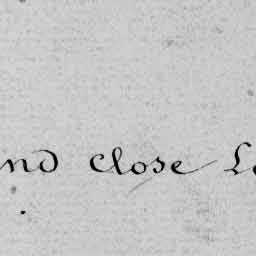 nd close